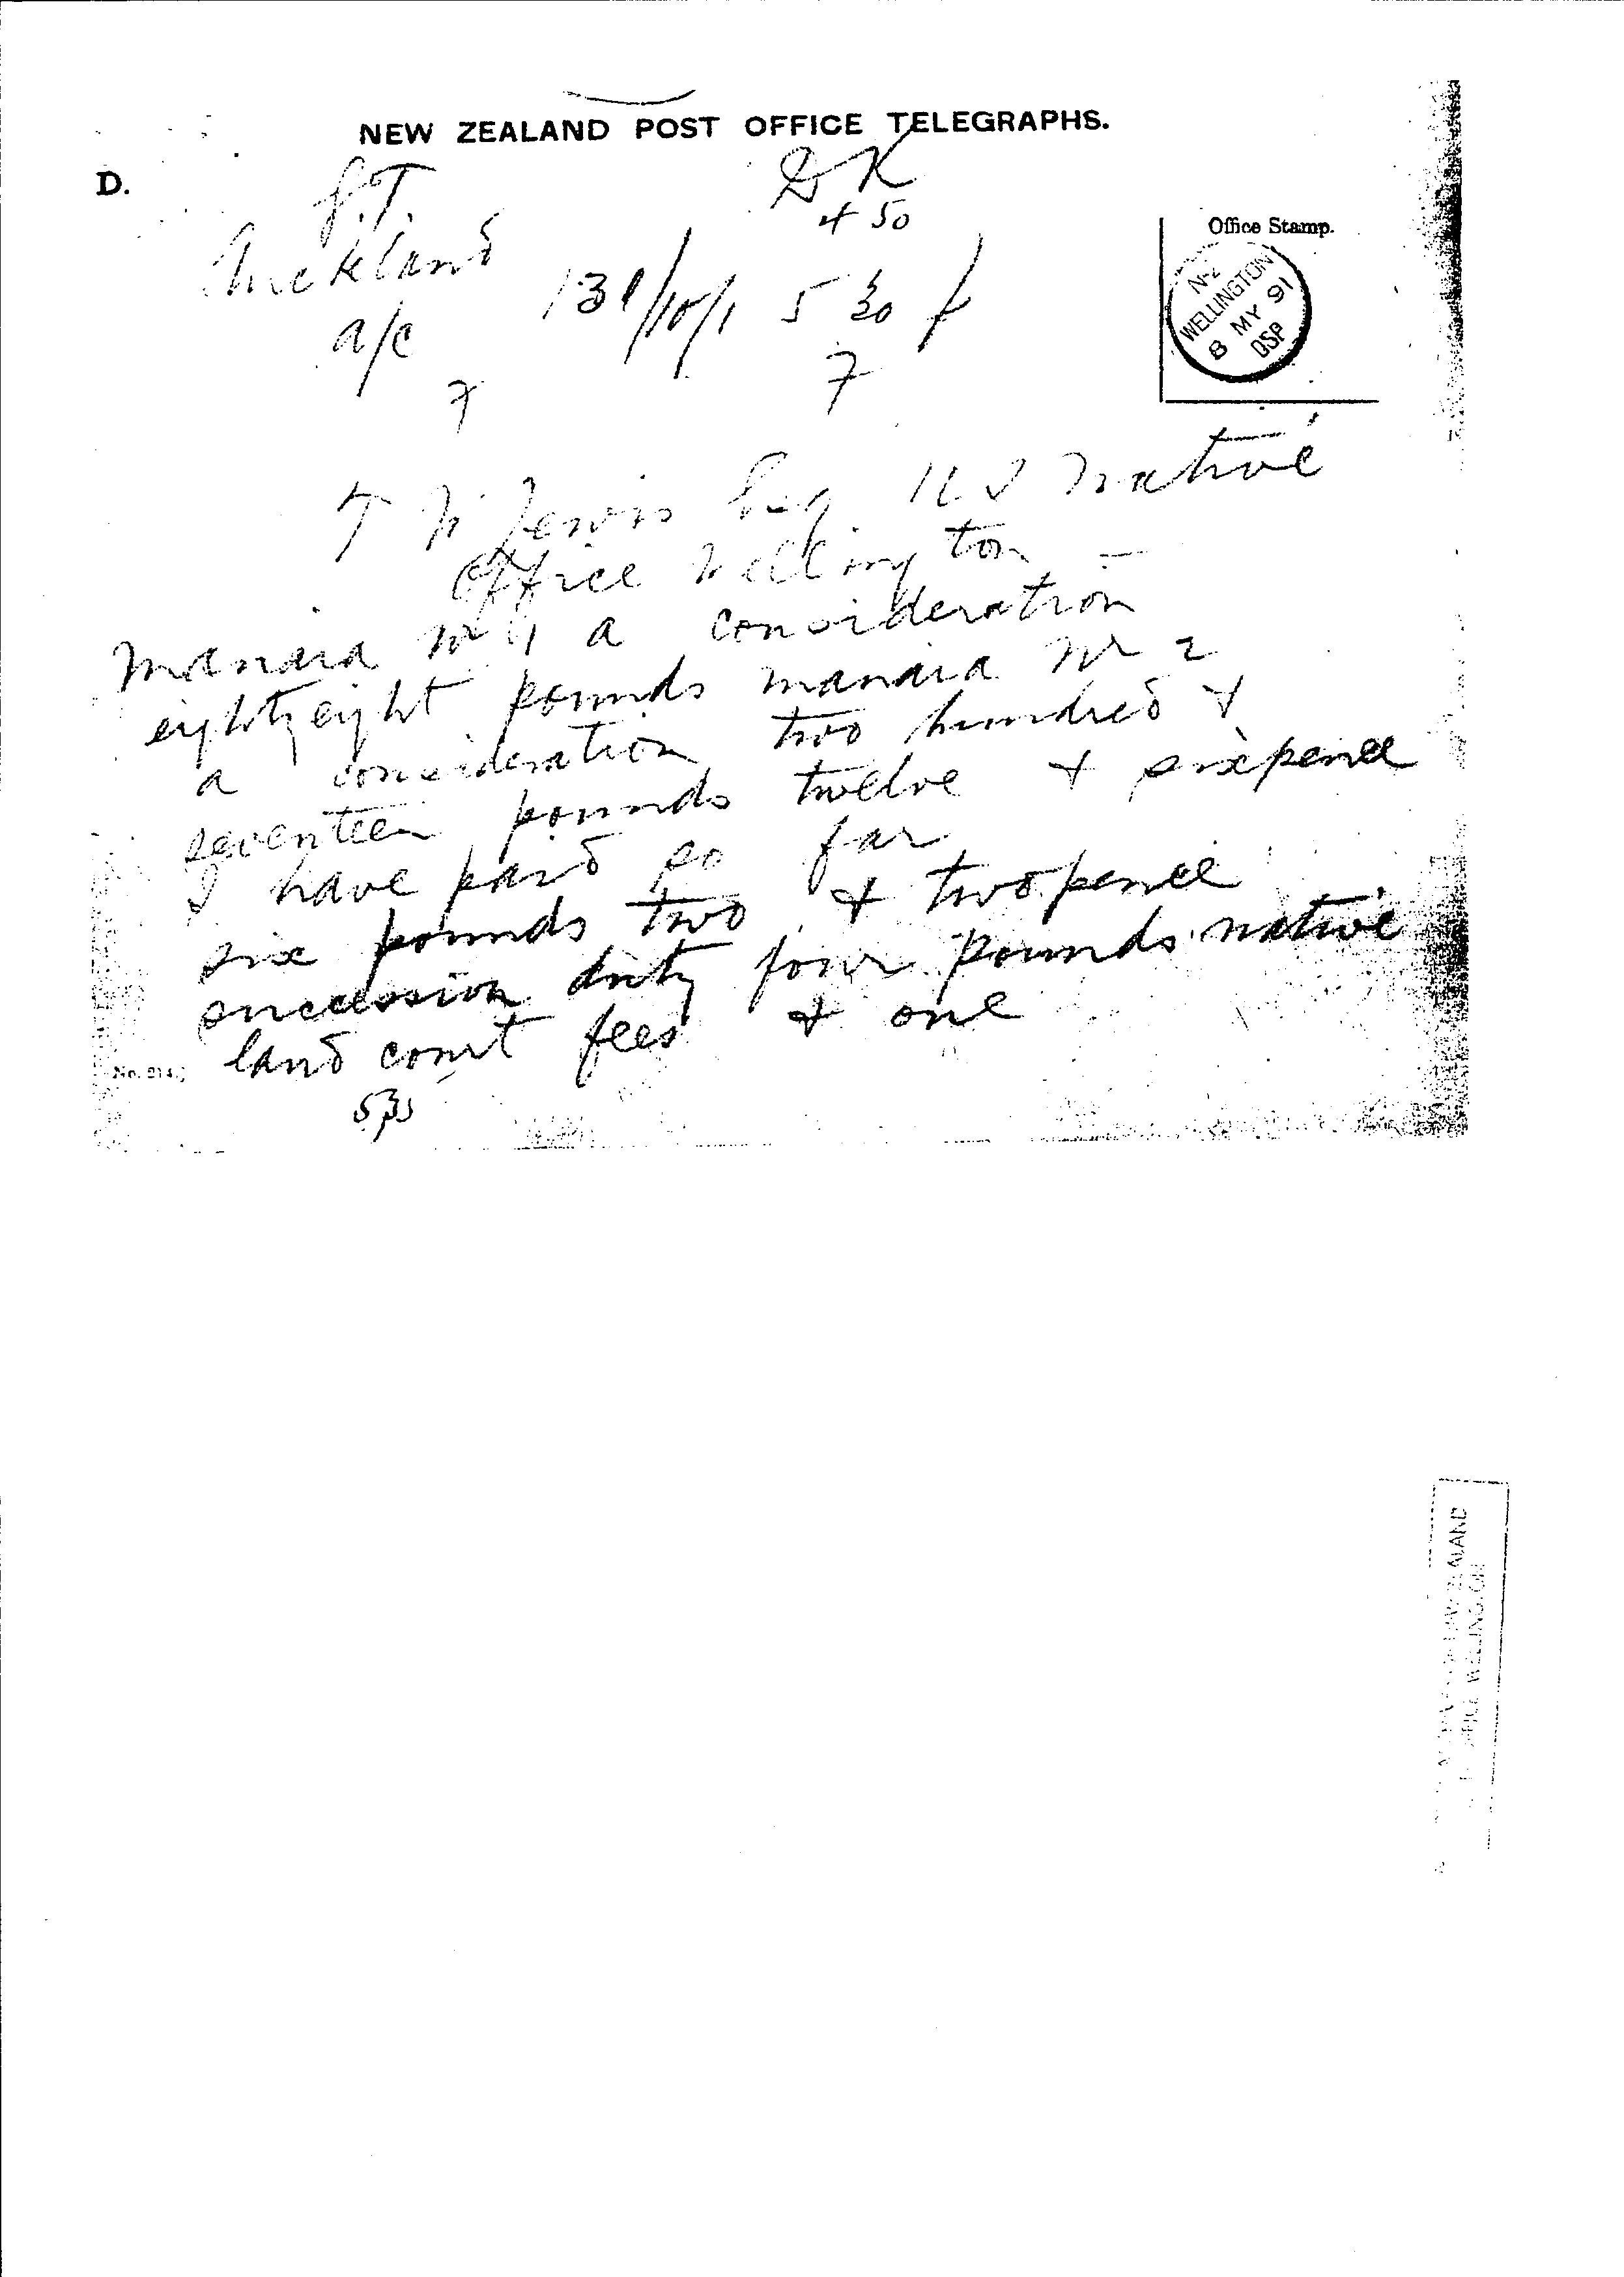 NEW ZEALAND POST OFFICE TELEGRAPHS.
D.
DK
4 50
Auckland
a/c
5 30
7
7
Office Stamp.
N-Z
WELLINGTON
8 MY 91
DSP
T W Lewis Esq U S Native
Office Wellington
Manaia No 1 a consideration
eighty eight pounds manaia No 2
a consideration two hundred &
seventeen pounds twelve & sixpence
I have paid so far
six pounds two & twopence
succession duty four pounds native
land court fees & one
No. 214.